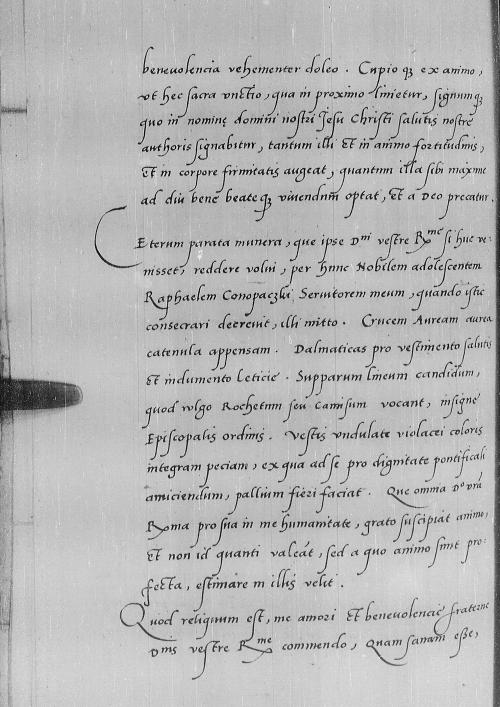 beneuolencia vehementer doleo. Cupio qȝ ex animo,
vt hec sacra vnctio, qua in proximo linietur, signumqȝ
quo in nomine domini nostri Jesu Christi salutis nostre
authoris signabitur, tantum illi et in animo fortitudinis,
Et in corpore firmitatis augeat, quantum illa sibi maxime
ad diu bene beateqȝ viuendum optat, et a Deo precatur.
Ceterum parata munera, que ipse Dni vestre Rme si huc ve:
nisset, reddere volui, per hunc Nobilem adolescentem
Raphaelem Conopaczki Seruitorem meum, quando istic
consecrari decreuit, illi mitto. Crucem Auream aurea
catenula appensam. Dalmaticas pro vestimento salutis
Et indumento leticie. Supparum lineum candidum,
quod vulgo Rochetum seu camisum vocant, insigne
Episcopalis ordinis. Vestis vndulate violacei coloris
integram peciam, ex qua ad se pro dignitate pontificali
amiciendum, pallium fieri faciat. Que omnia Do vra
Rma pro sua in me humanitate, grato suscipiat animo,
Et non id quanti valeat, sed a quo animo sint pro:
fecta, estimare in illis velit.
Quod reliquum est, me amori Et beneuolencie fraterne
Dnis vestre Rme commendo, Quam sanam esse,